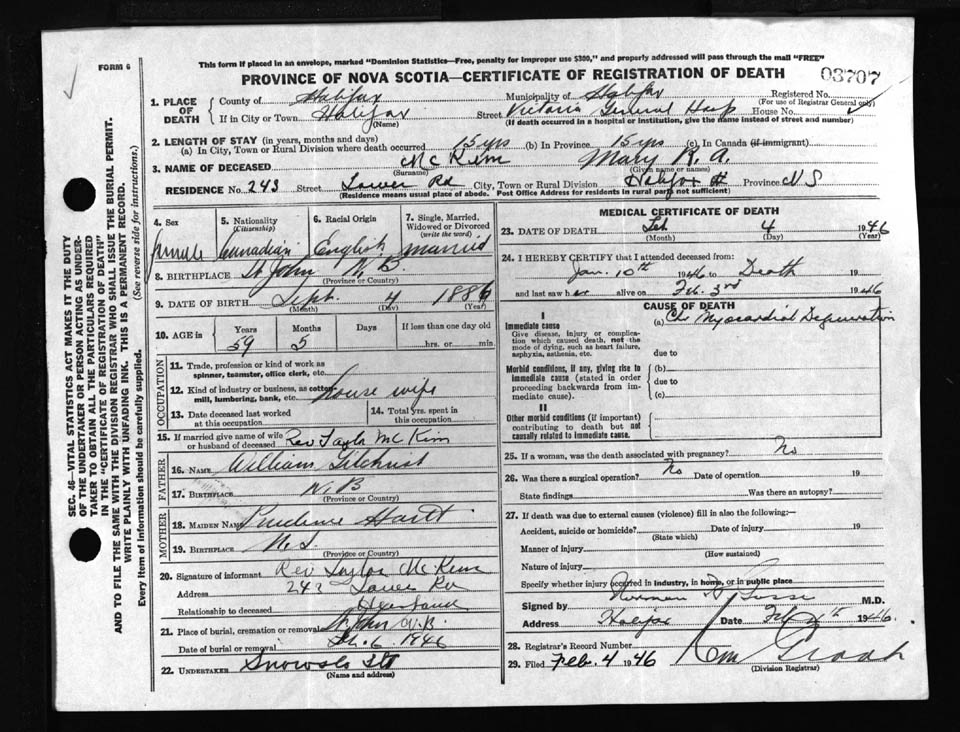 FORM 6
This form if placed in an envelope, marked "Dominion Statistics—Free, penalty for improper use $300," and properly addressed will pass through the mail "FREE"
PROVINCE OF NOVA SCOTIA—CERTIFICATE OF REGISTRATION OF DEATH
03707
SEC. 46—VITAL STATISTICS ACT MAKES IT THE DUTY OF THE UNDERTAKER OR PERSON ACTING AS UNDERTAKER TO OBTAIN ALL THE PARTICULARS REQUIRED IN THE "CERTIFICATE OF REGISTRATION OF DEATH"
AND TO FILE THE SAME WITH THE DIVISION REGISTRAR WHO SHALL ISSUE THE BURIAL PERMIT.
WRITE PLAINLY WITH UNFADING INK. THIS IS A PERMANENT RECORD.
Every item of Information should be carefully supplied. (See reverse side for instructions.)
1. PLACE OF DEATH County of Halifax Municipality of Halifax Registered No.
(For use of Registrar General only)
If in City or Town Halifax Street Victoria General Hosp House No.
(Name) (If death occurred in a hospital or institution, give the name instead of street and number)
2. LENGTH OF STAY (in years, months and days)
(a) In City, Town or Rural Division where death occurred 15 yrs (b) In Province 15 yrs (c) In Canada (if immigrant)
3. NAME OF DECEASED McKim Mary R. A.
(Surname) (Given name or names)
RESIDENCE No. 243 Street Tower Rd City, Town or Rural Division Halifax Province N S
(Residence means usual place of abode. Post Office Address for residents in rural parts not sufficient)
4. Sex 5. Nationality (Citizenship) 6. Racial Origin 7. Single, Married, Widowed or Divorced (write the word)
female Canadian English married
8. BIRTHPLACE St John N. B.
(Province or Country)
9. DATE OF BIRTH Sept. 4 1886
(Month) (Day) (Year)
10. AGE in Years Months Days If less than one day old
59 5 hrs. or min.
OCCUPATION
11. Trade, profession or kind of work as spinner, teamster, office clerk, etc.
12. Kind of industry or business, as cotton mill, lumbering, bank, etc. House wife
13. Date deceased last worked at this occupation
14. Total yrs. spent in this occupation
15. If married give name of wife or husband of deceased Rev Taylor McKim
FATHER
16. NAME William Gilchrist
17. BIRTHPLACE N. B
(Province or Country)
MOTHER
18. MAIDEN NAME Prudence Hartt
19. BIRTHPLACE N. S.
(Province or Country)
20. Signature of informant Rev Taylor McKim
Address 243 Tower Rd
Relationship to deceased Husband
21. Place of burial, cremation or removal St John N.B.
Date of burial or removal Feb. 6 1946
22. UNDERTAKER Snows Ltd
(Name and address)
MEDICAL CERTIFICATE OF DEATH
23. DATE OF DEATH Feb 4 1946
(Month) (Day) (Year)
24. I HEREBY CERTIFY that I attended deceased from:
Jan. 10th 1946 to Death 19
and last saw her alive on Feb. 3rd 1946
CAUSE OF DEATH
I
Immediate cause
Give disease, injury or complication which caused death, not the mode of dying, such as heart failure, asphyxia, asthenia, etc.
(a) Chr Myocardial Degeneration
due to
Morbid conditions, if any, giving rise to immediate cause (stated in order proceeding backwards from immediate cause).
(b)
due to
(c)
II
Other morbid conditions (if important) contributing to death but not causally related to immediate cause.
25. If a woman, was the death associated with pregnancy? No
26. Was there a surgical operation? No Date of operation 19
State findings Was there an autopsy?
27. If death was due to external causes (violence) fill in also the following:—
Accident, suicide or homicide? Date of injury 19
(State which)
Manner of injury
(How sustained)
Nature of injury
Specify whether injury occurred in industry, in home, or in public place
Signed by Norman H Gosse M.D.
Address Halifax Date Feb 4th 1946
28. Registrar's Record Number
29. Filed Feb. 4 1946
(Division Registrar)